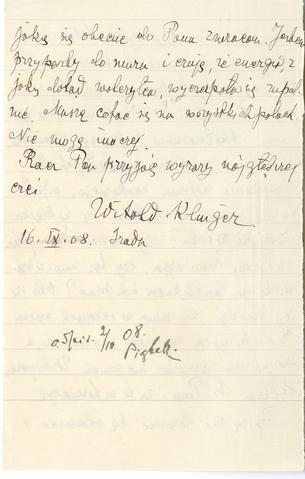 jaką się obecnie do Pana zwracam. Jestem
przyparty do muru i czuję, że energia z
jaką dotąd walczyłem, wyczerpała się zupeł-
nie. Muszę cofać się na wszystkich polach.
Nie mogę inaczej.
Racz Pan przyjąć wyrazy najgłębszej
czci
Witold Klinger
16. IX. 08.
odpis. 2/10 08.